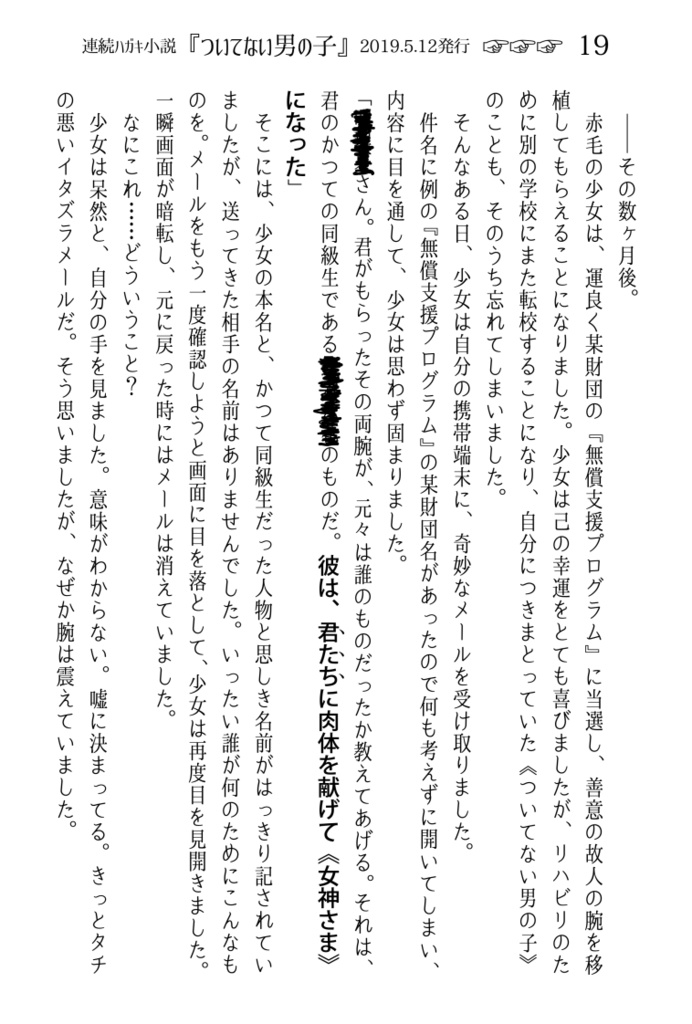 連続ハガキ小説『ついてない男の子』2019.5.12発行 ☞☞☞ 19
――その数ヶ月後。
赤毛の少女は、運良く某財団の『無償支援プログラム』に当選し、善意の故人の腕を移
植してもらえることになりました。少女は己の幸運をとても喜びましたが、リハビリのた
めに別の学校にまた転校することになり、自分につきまとっていた《ついてない男の子》
のことも、そのうち忘れてしまいました。
そんなある日、少女は自分の携帯端末に、奇妙なメールを受け取りました。
件名に例の『無償支援プログラム』の某財団名があったので何も考えずに開いてしまい、
内容に目を通して、少女は思わず固まりました。
「さん。君がもらったその両腕が、元々は誰のものだったか教えてあげる。それは、
君のかつての同級生であるのものだ。彼は、君たちに肉体を献げて《女神さま》
になった」
そこには、少女の本名と、かつて同級生だった人物と思しき名前がはっきり記されてい
ましたが、送ってきた相手の名前はありませんでした。いったい誰が何のためにこんなも
のを。メールをもう一度確認しようと画面に目を落として、少女は再度目を見開きました。
一瞬画面が暗転し、元に戻った時にはメールは消えていました。
なにこれ……どういうこと?
少女は呆然と、自分の手を見ました。意味がわからない。嘘に決まってる。きっとタチ
の悪いイタズラメールだ。そう思いましたが、なぜか腕は震えていました。